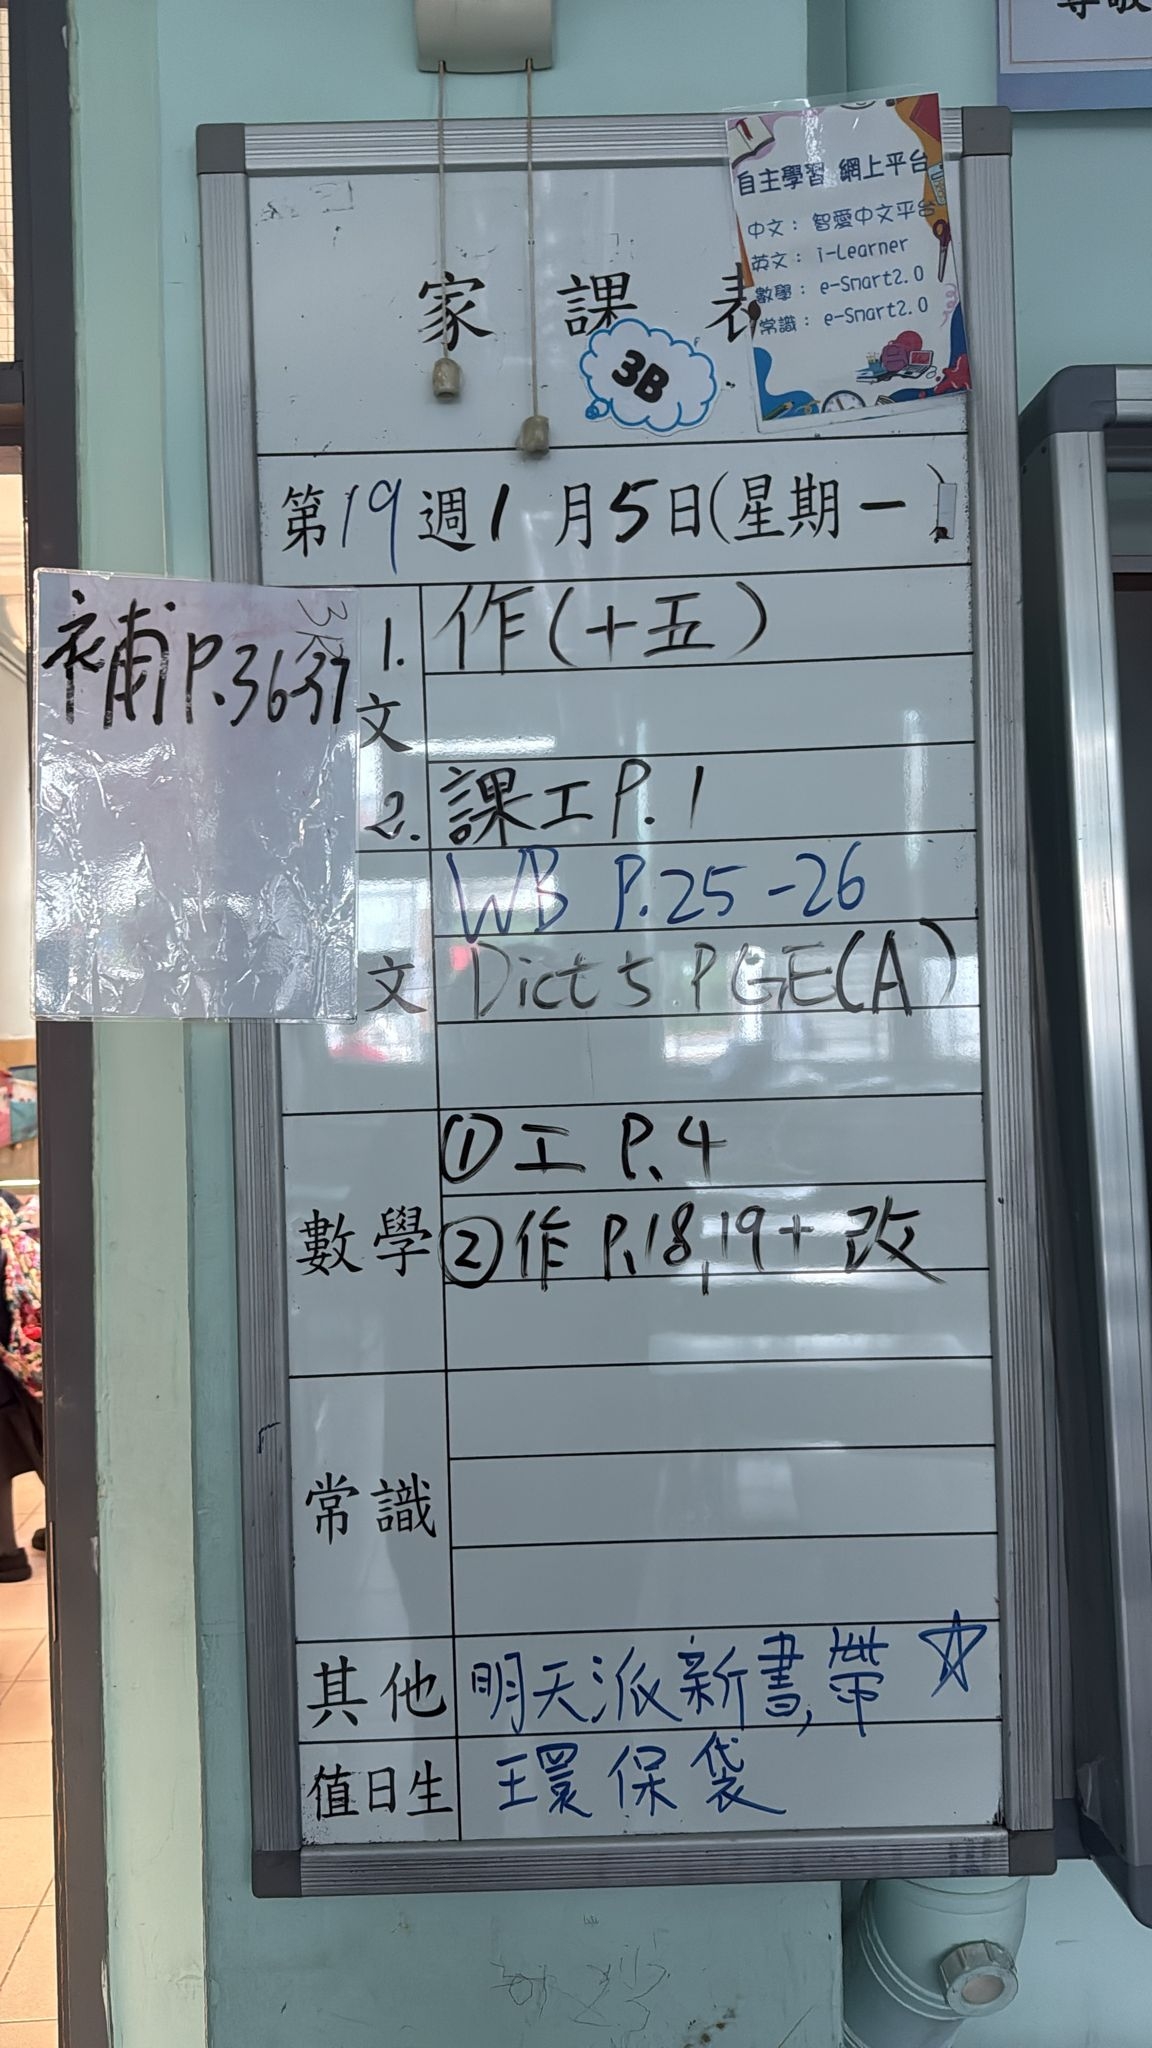 尊敬
自主學習 網上平台
中文：智愛中文平台
英文：i-Learner
數學：e-Smart2.0
常識：e-Smart2.0
家課表
3B
第19週1月5日(星期一)
補P.36-37
文
1. 作(十五)
2. 課工P.1
文
WB P.25-26
Dict 5 P GE(A)
數學
①工 P.4
②作 P.18,19+改
常識
其他 明天派新書,帶☆
值日生 環保袋